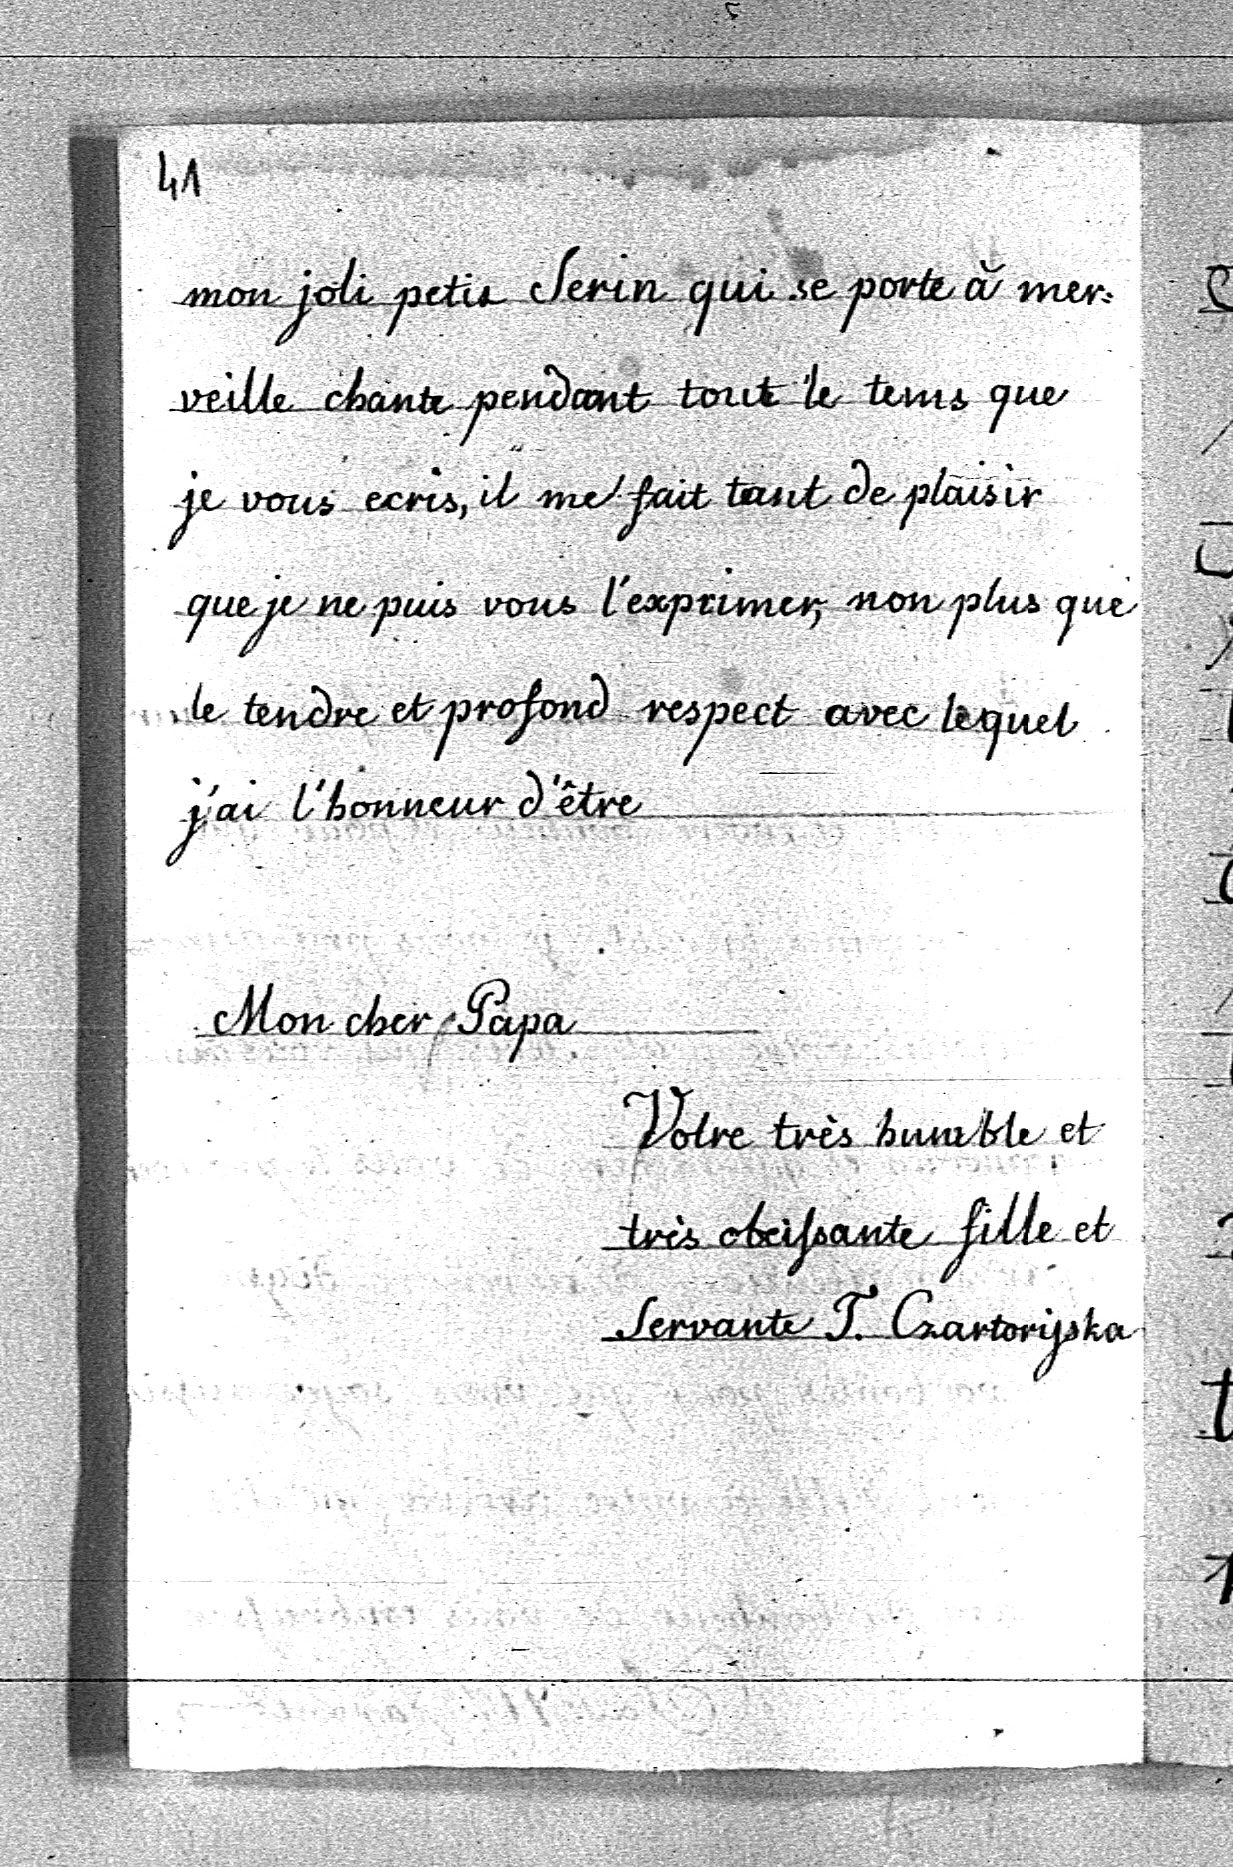 41
mon joli petit Serin qui se porte à mer=
veille chante pendant tout le tems que
je vous ecris, il me fait tant de plaisir
que je ne puis vous l'exprimer, non plus que
le tendre et profond respect avec lequel
j'ai l'honneur d'être
Mon cher Papa
Votre très humble et
très obeissante fille et
Servante T. Czartorijska